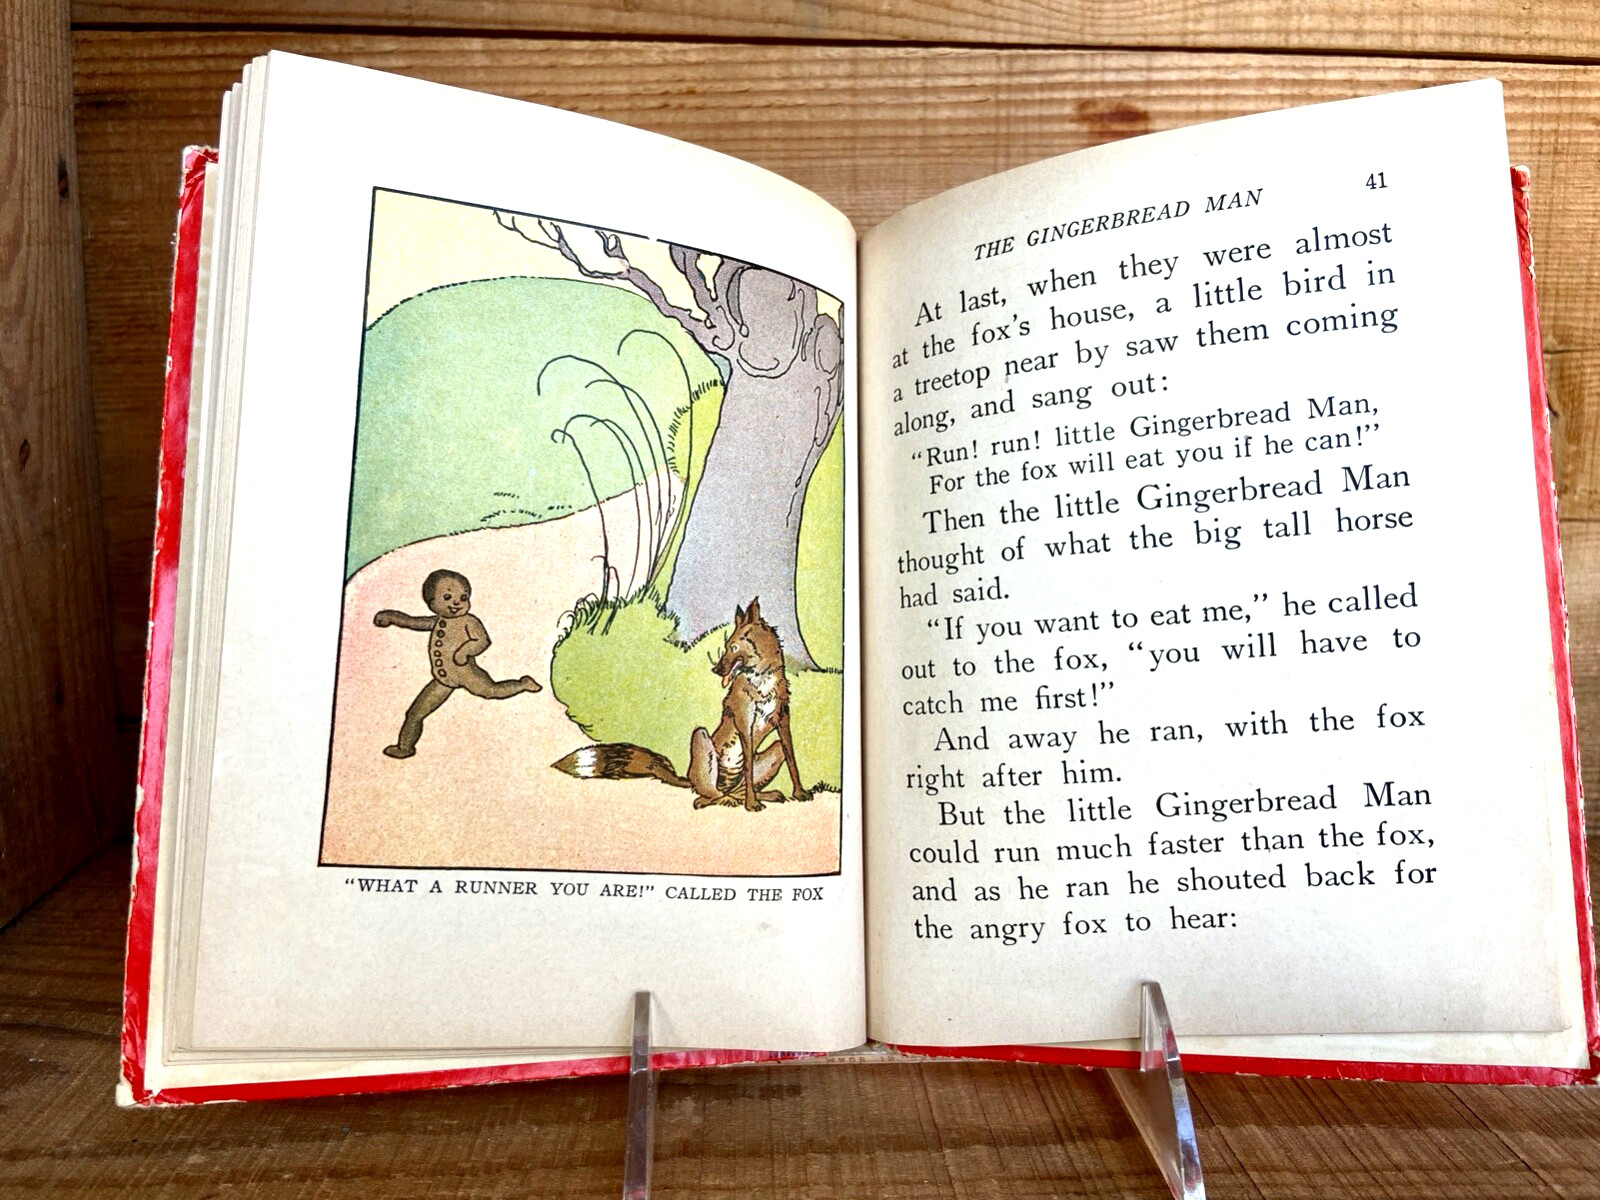 "WHAT A RUNNER YOU ARE!" CALLED THE FOX
THE GINGERBREAD MAN 41
At last, when they were almost
at the fox's house, a little bird in
a treetop near by saw them coming
along, and sang out:
"Run! run! little Gingerbread Man,
For the fox will eat you if he can!"
Then the little Gingerbread Man
thought of what the big tall horse
had said.
"If you want to eat me," he called
out to the fox, "you will have to
catch me first!"
And away he ran, with the fox
right after him.
But the little Gingerbread Man
could run much faster than the fox,
and as he ran he shouted back for
the angry fox to hear: